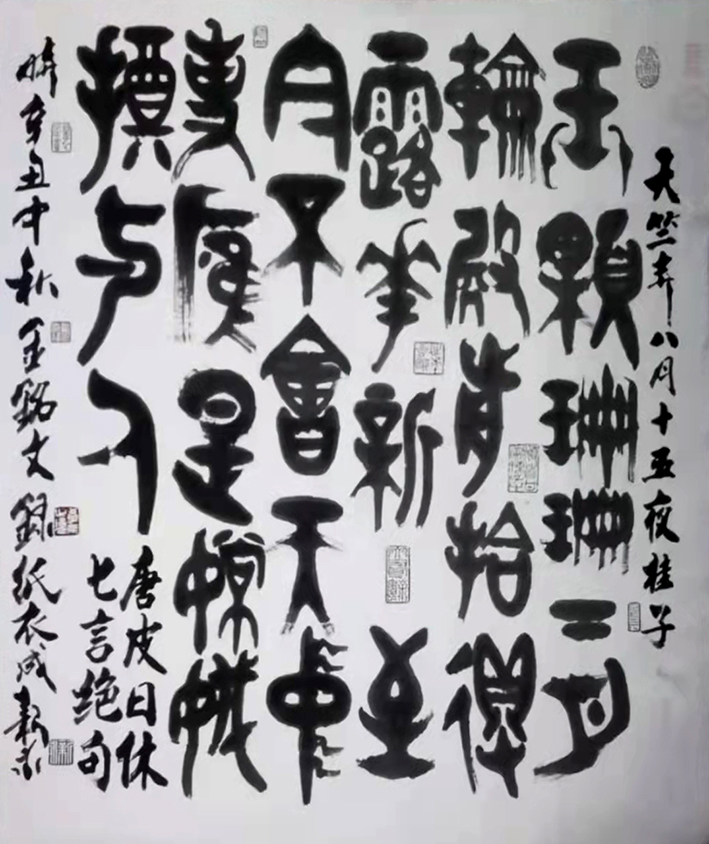 天竺寺八月十五夜桂子
玉顆珊珊下月
輪殿前拾得
露華新至
今不會天中
事應是嫦娥
擲与人
唐皮日休
七言绝句
時辛丑中秋金銘文録纸衣成